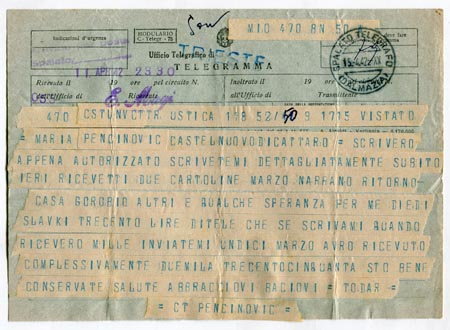 MIO 470 BN 50
Indicazioni d'urgenza
MODULARIO
C.-Telegr.-75
Ufficio Telegrafico di
TRIESTE
TELEGRAMMA
SPALATO TELEGRAFO
(DALMAZIA)
Ricevuto il
19
ore
pel circuito N.
Inoltrato il
19
ore
all'Ufficio di
Trasmittente
470 CSTUNVCTTR USTICA 118 52/50 9 1715 VISTATO
= MARIA PENCINOVIC CASTELNUOVODICATTARO = SCRIVERO
APPENA AUTORIZZATO SCRIVETEMI DETTAGLIATAMENTE SUBITO
IERI RICEVETTI DUE CARTOLINE MARZO NARRANO RITORNO
CASA GOROBIO ALTRI E QUALCHE SPERANZA PER ME DIEDI
SLAVKI TRECENTO LIRE DITELE CHE SE SCRIVAMI QUANDO
RICEVERO MILLE INVIATEMI UNDICI MARZO AVRO RICEVUTO
COMPLESSIVAMENTE DUEMILA TRECENTOCINQUANTA STO BENE
CONSERVATE SALUTE ABBRACCIOVI BACIOVI = TODAR =
= CT PENCINOVIC =